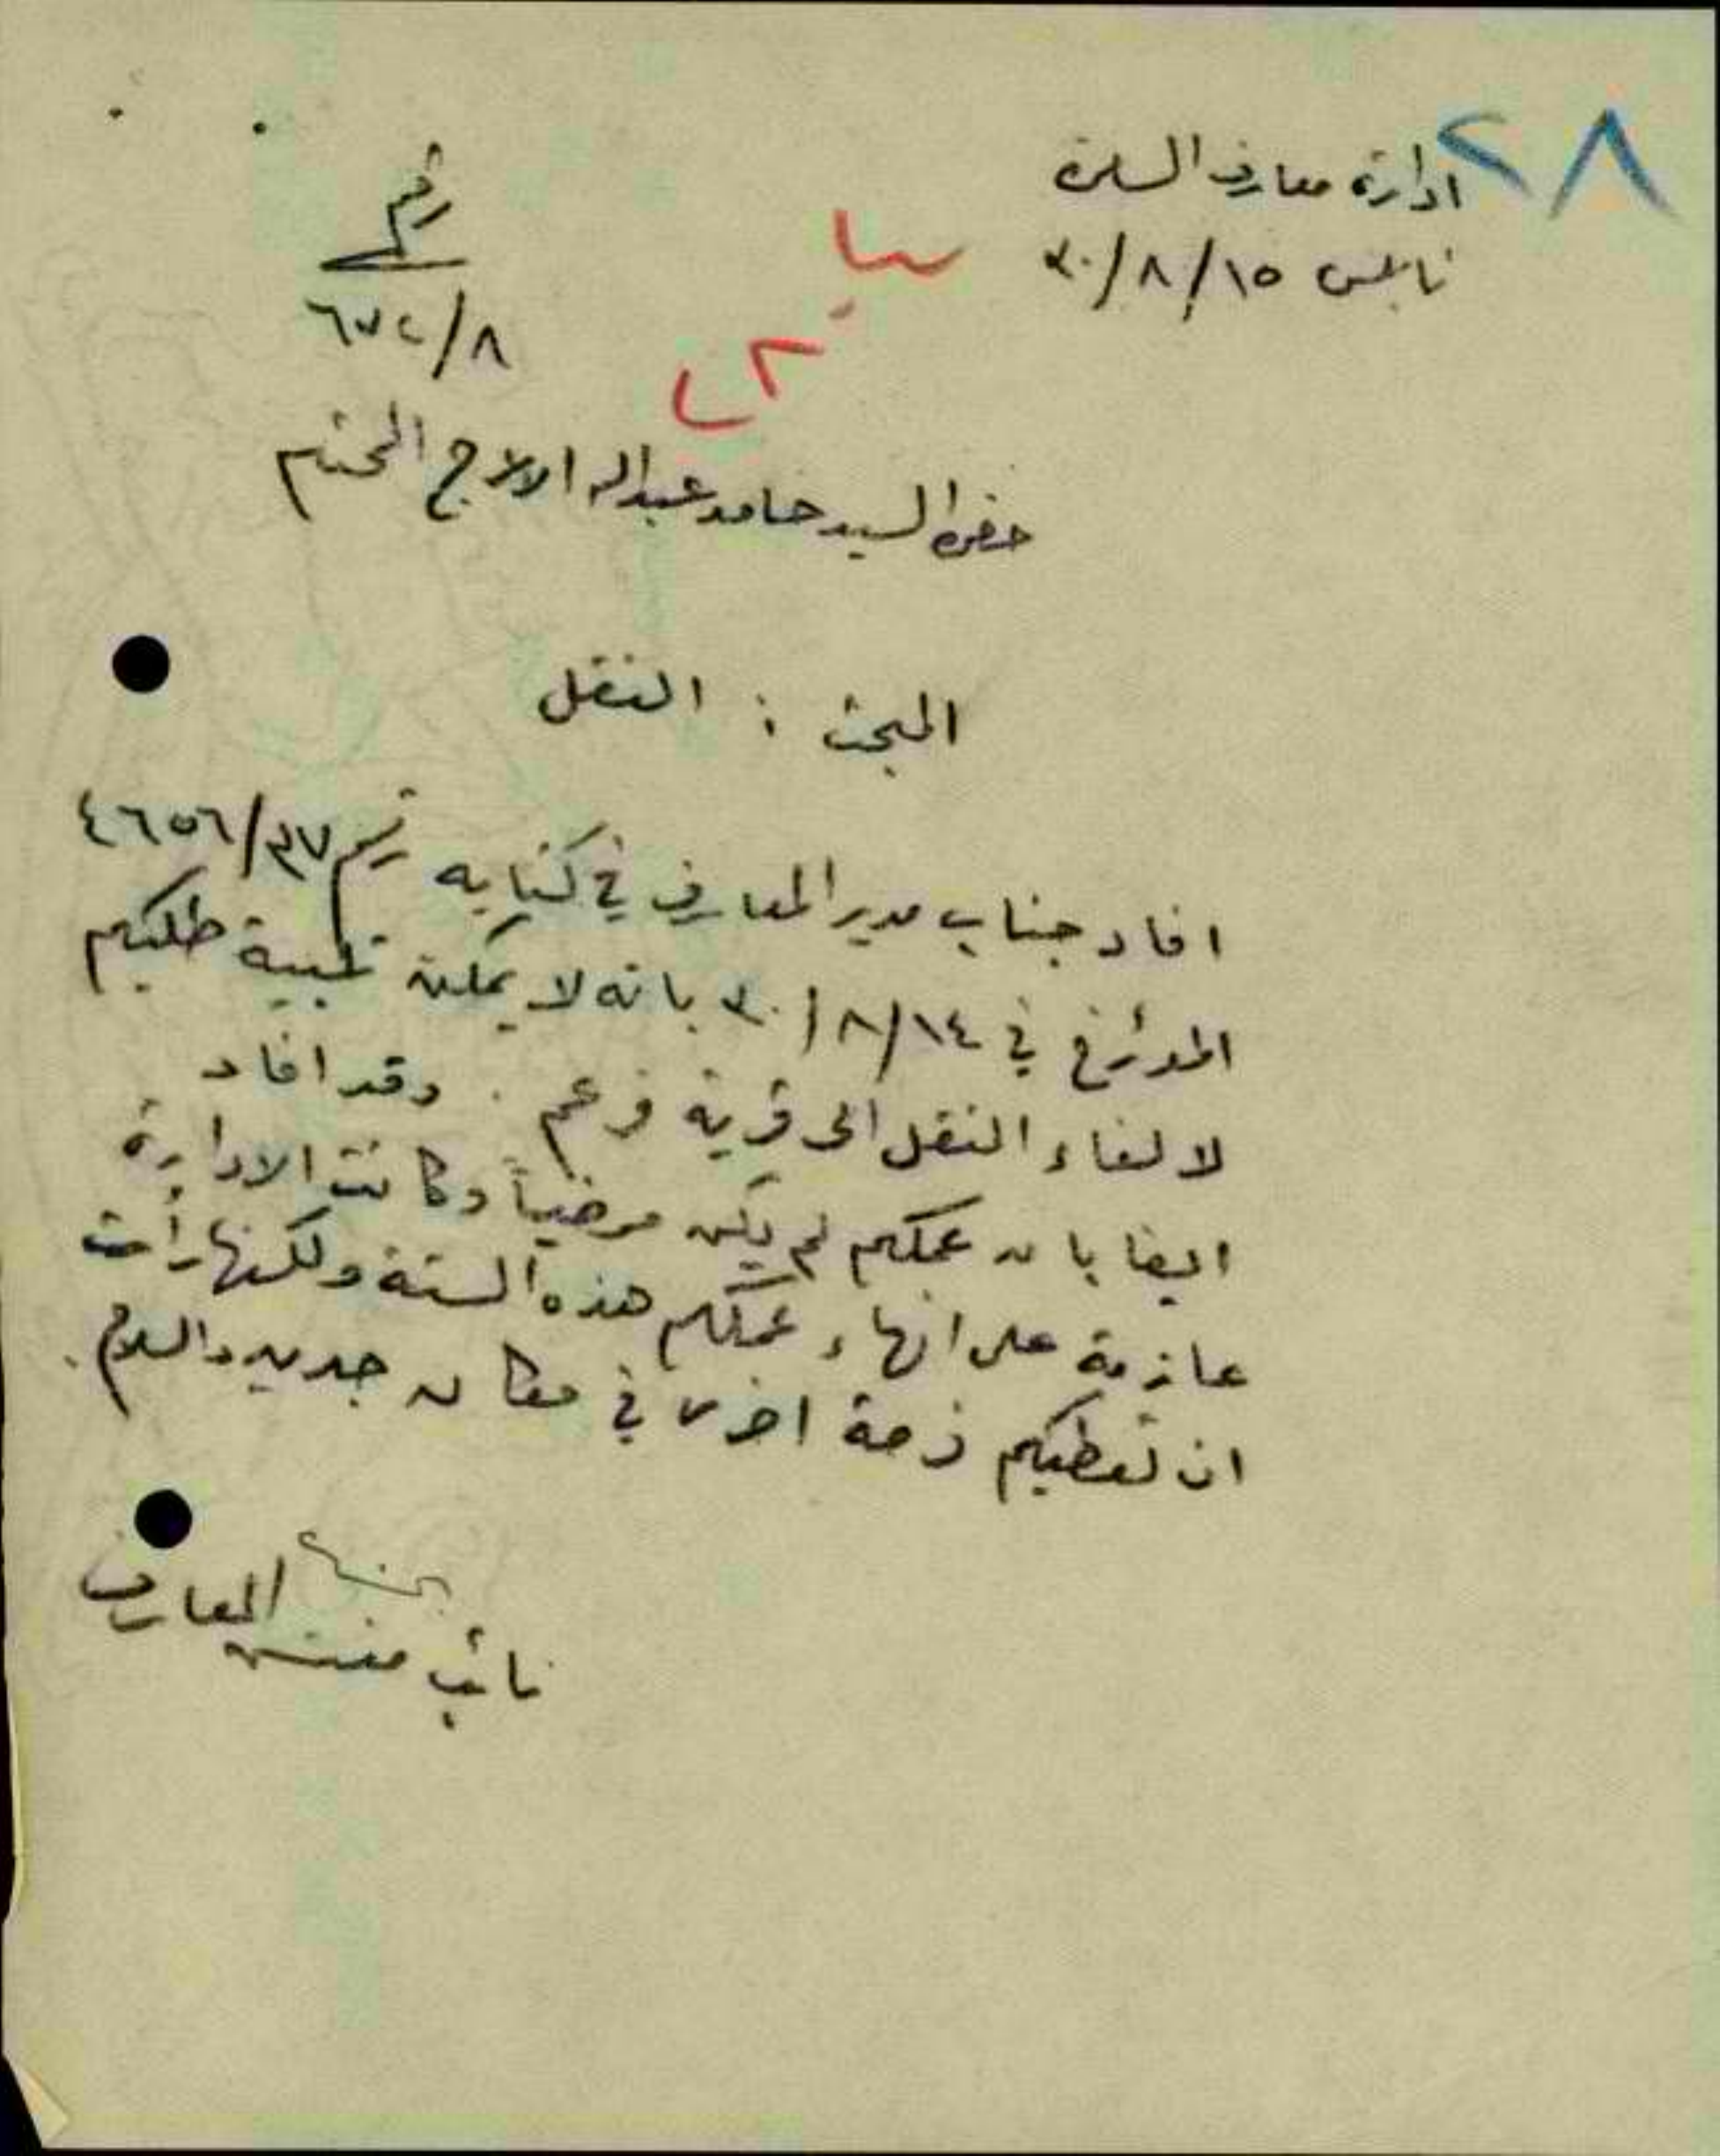 ٢٨
ادارة معارف السامرة
نابلس ١٥/٨/٣٠
رقم
٨/٦٧٢
حضرة السيد حامد عبدالله الاعرج المحترم
المبحث : النقل
افاد جناب مدير المعارف في كتابه رقم ٣٧/٤٦٥٦
المؤرخ في ١٤/٨/٣٠ بانه لا يمكن تلبية طلبكم
لالغاء النقل الى قرية فرعم . وقد افاد
ايضا بان عملكم لم يكن مرضياً وكانت الادارة
عازمة على انهاء عملكم هذه السنة ولكنها رأت
ان تعطيكم فرصة اخرى في مكان جديد والسلام .
نائب مفتش المعارف